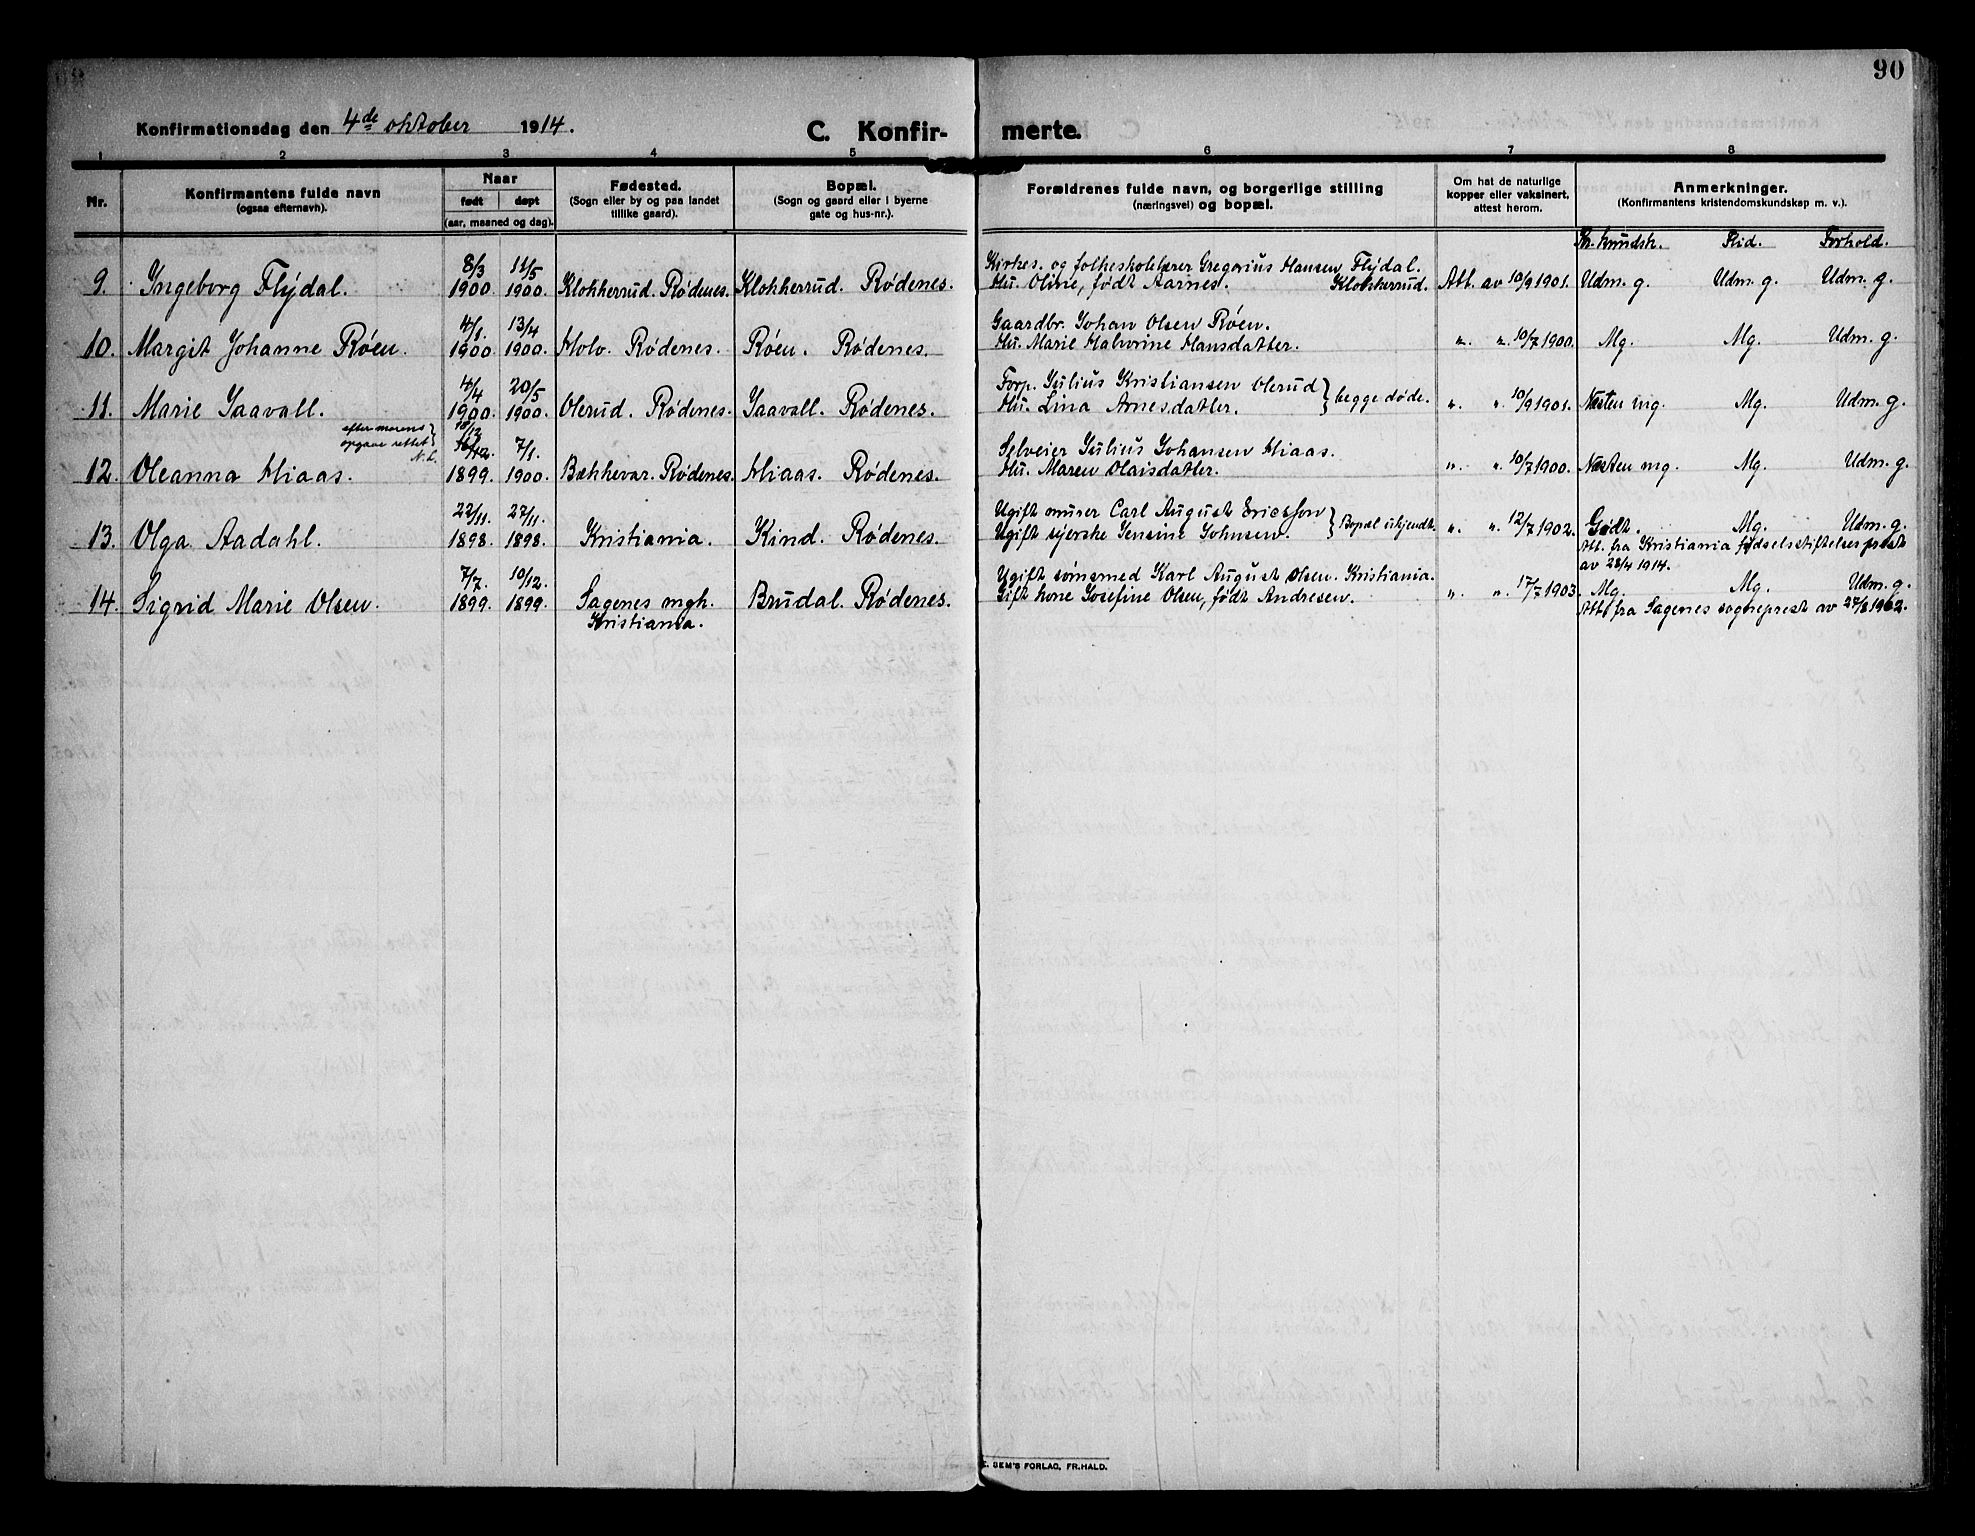 90
Konfirmationsdag den 4de oktober 1914.
C. Konfir-
merte.
1 2 3 4 5 6 7 8
Nr.
Konfirmantens fulde navn
(ogsaa efternavn).
Naar
født døpt
(aar, maaned og dag).
Fødested.
(Sogn eller by og paa landet
tillike gaard).
Bopæl.
(Sogn og gaard eller i byerne
gate og hus-nr.).
Forældrenes fulde navn, og borgerlige stilling
(næringsvei) og bopæl.
Om hat de naturlige
kopper eller vaksinert,
attest herom.
Anmerkninger.
(Konfirmantens kristendomskundskap m. v.).
Kr. kundsk. Flid. Forhold.
8/3 11/5 Kirkes. og folkeskolelærer Gregorius Hansen Flÿdal.
9. Ingeborg Flÿdal. 1900. 1900. Klokkerrud. Rødenes. Klokkerrud. Rødenes. Hu. Oline, født Aarnes. Klokkerrud. Att. av 10/9 1901. Udm. g. Udm. g. Udm. g.
4/1. 13/4 Gaardbr. Johan Olsen Røen.
10. Margit Johanne Røen. 1900. 1900. Holo. Rødenes. Røen. Rødenes. Hu. Marie Halvorine Hansdatter. " " 10/7 1900. Mg. Mg. Udm. g.
4/4 20/5 Forp. Julius Kristiansen Olerud } begge døde.
11. Marie Taavall. 1900. 1900. Olerud. Rødenes. Taavall. Rødenes. Hu. Lina Arnesdatter. " " 10/9 1901. Næsten mg. Mg. Udm. g.
efter morens }
opgave rettet
N. L.
7/1. Selveier Julius Johansen Hiaas.
12. Oleanna Hiaas. 1899. 1900. Bækkevar. Rødenes. Hiaas. Rødenes. Hu. Maren Olaisdatter. " " 10/7 1900. Næsten mg. Mg. Udm. g.
22/11. 27/11. Ugift murer Carl August Ericsson } Bopæl ukjendt.
13. Olga Aadahl. 1898. 1898. Kristiania. Kind. Rødenes. Ugift syerske Jensine Johnsen. " " 12/7 1902. Godt. Mg. Udm. g.
Att. fra Kristiania fødselsstiftelses prest
av 28/4 1914.
7/7. 10/12. Ugift sømsmed Karl August Olsen. Kristiania.
14. Sigrid Marie Olsen. 1899. 1899. Sagenes mgh. Brudal. Rødenes. Gift kone Josefine Olsen, født Andresen. " " 17/7 1903. Mg. Mg. Udm. g.
Kristiania.
Att. fra Sagenes sogneprest av 27/8 1902.
E. SEM'S FORLAG, FR.HALD.